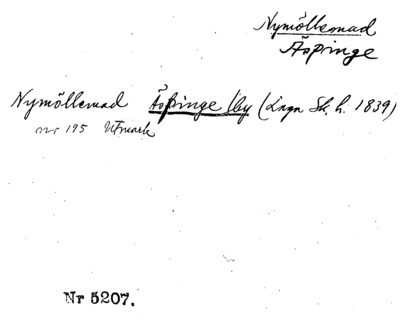 Nymöllemad
Äspinge
Nymöllemad Äspinge by (Laga Sk. h. 1839)
nr 195 Utmark
Nr 5207.